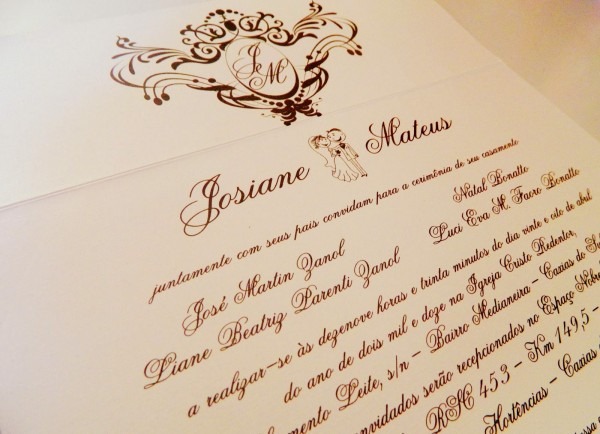 J M
Josiane Mateus
juntamente com seus pais convidam para a cerimônia de seu casamento
José Martin Zanol Natal Bonatto
Liane Beatriz Parenti Zanol Luci Eva M. Facro Bonatto
a realizar-se às dezenove horas e trinta minutos do dia vinte e oito de abril
do ano de dois mil e doze na Igreja Cristo Redentor,
Leite, s/n - Bairro Medianeira - Caxias do
serão recepcionados no Espaço
453 - Km 149,5 -
Hortências -